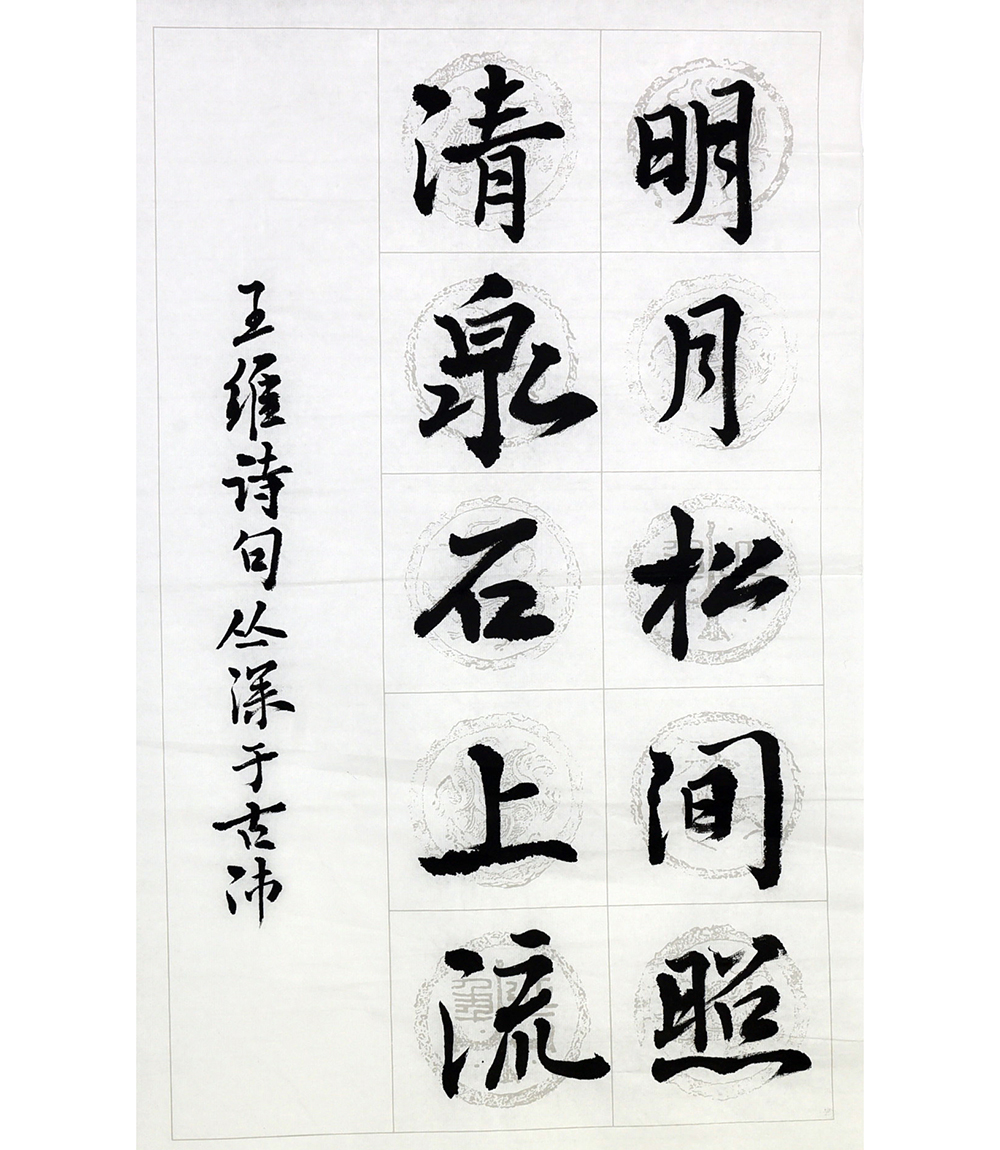 明月松间照
清泉石上流
王维诗句丛深于古沛